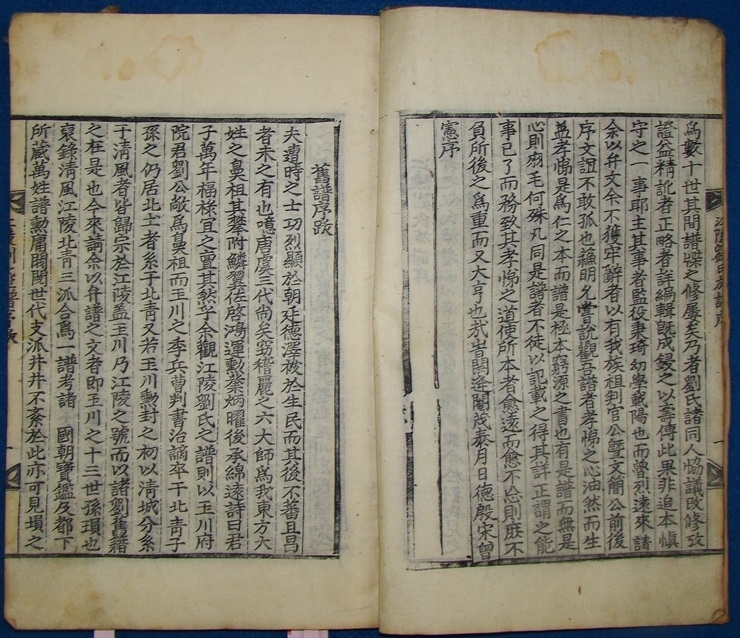 爲數十世其間譜牒之修屢矣乃者劉氏諸同人恊議改修攷
證益精訛者正略者詳編輯旣成鋟之以壽傳此果非追本愼
守之一事耶主其事者監役秉琦幼學載陽也而曾烈遠來請
余以弁文余不獲牢辭者以有我族祖判官公曁文簡公前後
序文誼不敢孤也穐明允嘗說觀吾譜者孝悌之心油然而生
盖孝悌是爲仁之本而譜是極本窮源之書也有是譜而無是
心則羽毛何殊凡同是譜者不徒以記載之得其詳正謂之能
事已了而務致其孝悌之道使所本者愈遠而愈不忘則庶不
負所後之爲重而又大亨也㢤旹閼逢閹茂泰月日德殷宋曾
憲序
江陵劉氏族譜序
舊譜序跋
夫遭時之士功烈顯於朝廷德澤被於生民而其後不蕃且昌
者未之有也噫唐虞三代尙矣窃稽麗之六大師爲我東方大
姓之鼻祖其攀附鱗翼佐啓鴻運勳業炳曜後承綿遠詩曰君
子萬年福祿宜之豈其然乎今觀江陵劉氏之譜則以玉川府
院君劉公敞爲鼻祖而玉川之季兵曹判書治謫卒于北青子
孫之仍居北土者系于北青又若玉川勳封之初以淸城分系
于淸風者皆歸宗於江陵盖玉川乃江陵之號而以諸劉舊譜
之在是也今來請余以弁譜之文者即玉川之十三世孫瑣也
裒錄淸風江陵北青三派合爲一譜考諸 國朝寶鑑及都下
所藏萬姓譜勳庸閥閱世代支派井井不紊於此亦可見瑣之